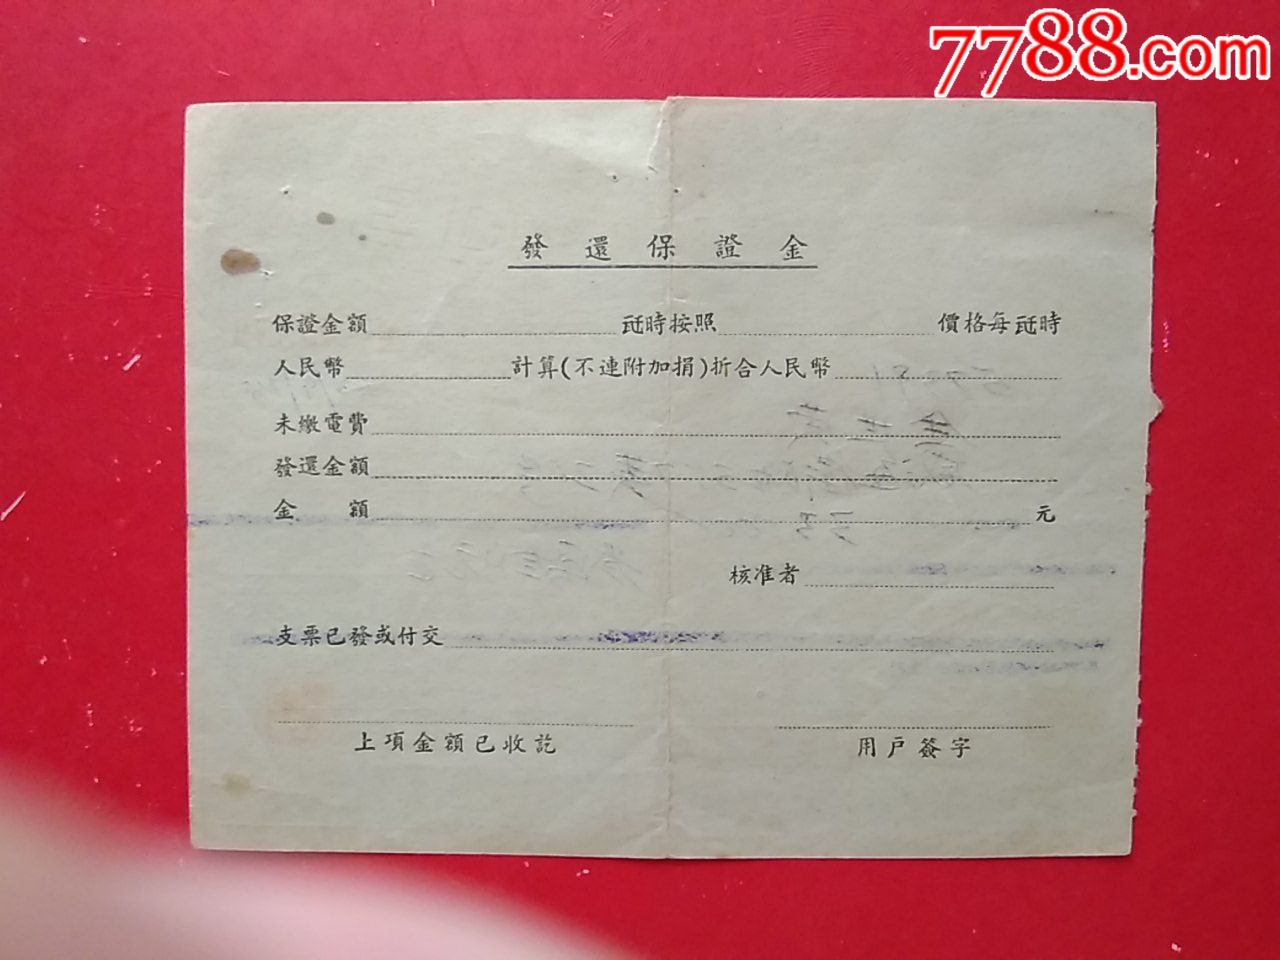 7788.com
發還保證金
保證金額 瓩時按照 價格每瓩時
人民幣 計算(不連附加捐)折合人民幣
未繳電費
發還金額
金額 元
核准者
支票已發或付交
上項金額已收訖 用戶簽字